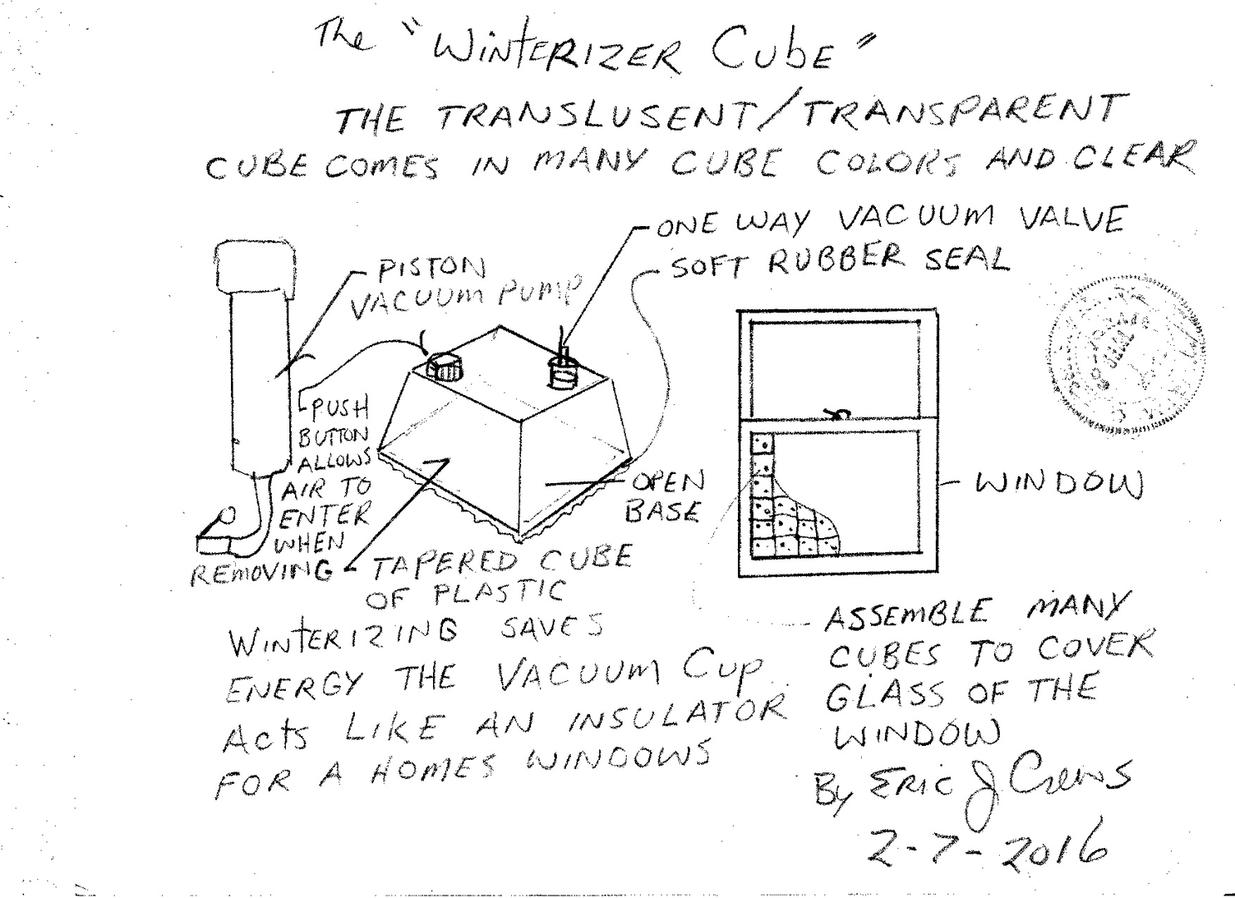 The "WINTERIZER CUBE"
THE TRANSLUSENT/TRANSPARENT
CUBE COMES IN MANY CUBE COLORS AND CLEAR
ONE WAY VACUUM VALVE
SOFT RUBBER SEAL
PISTON
VACUUM PUMP
PUSH
BUTTON
ALLOWS
AIR TO
ENTER
WHEN
REMOVING
OPEN
BASE
WINDOW
TAPERED CUBE
OF PLASTIC
WINTERIZING SAVES
ENERGY THE VACUUM CUP
ACTS LIKE AN INSULATOR
FOR A HOMES WINDOWS
ASSEMBLE MANY
CUBES TO COVER
GLASS OF THE
WINDOW
By ERIC J Crews
2-7-2016